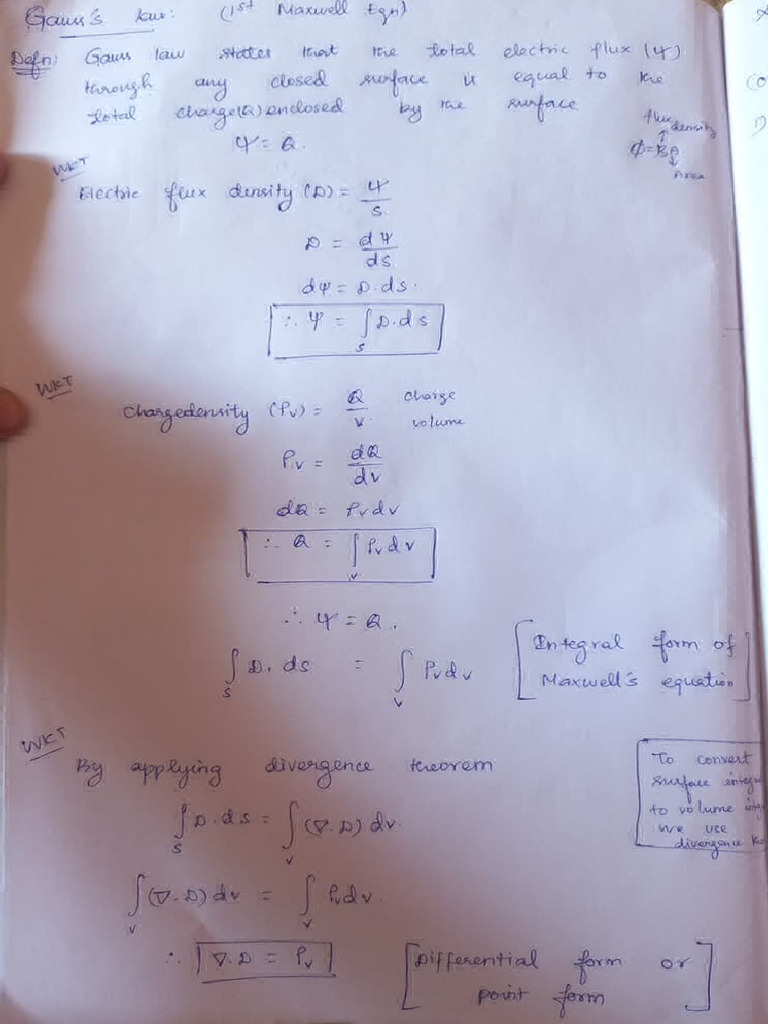 Gauss's law: (1st Maxwell Eqn)
Defn: Gauss law states that the total electric flux (Ψ)
through any closed surface is equal to the
total charge(Q) enclosed by the surface
Ψ = Q.
flux density
Φ = BA
Area
WKT
Electric flux density (D) = Ψ/s
D = dΨ/ds
dΨ = D.ds.
∴ Ψ = ∫s D.ds
WKT
Chargedensity (ρv) = Q/v charge volume
ρv = dQ/dv
dQ = ρv dv
∴ Q = ∫v ρv dv
∴ Ψ = Q.
∫s D. ds = ∫v ρv dv [Integral form of
Maxwell's equation]
WKT
By applying divergence theorem
To convert
surface
to volume
we use
divergence
∫s D.ds = ∫v (∇.D) dv.
∫v (∇.D) dv = ∫v ρv dv.
∴ ∇.D = ρv [Differential form or
point form]